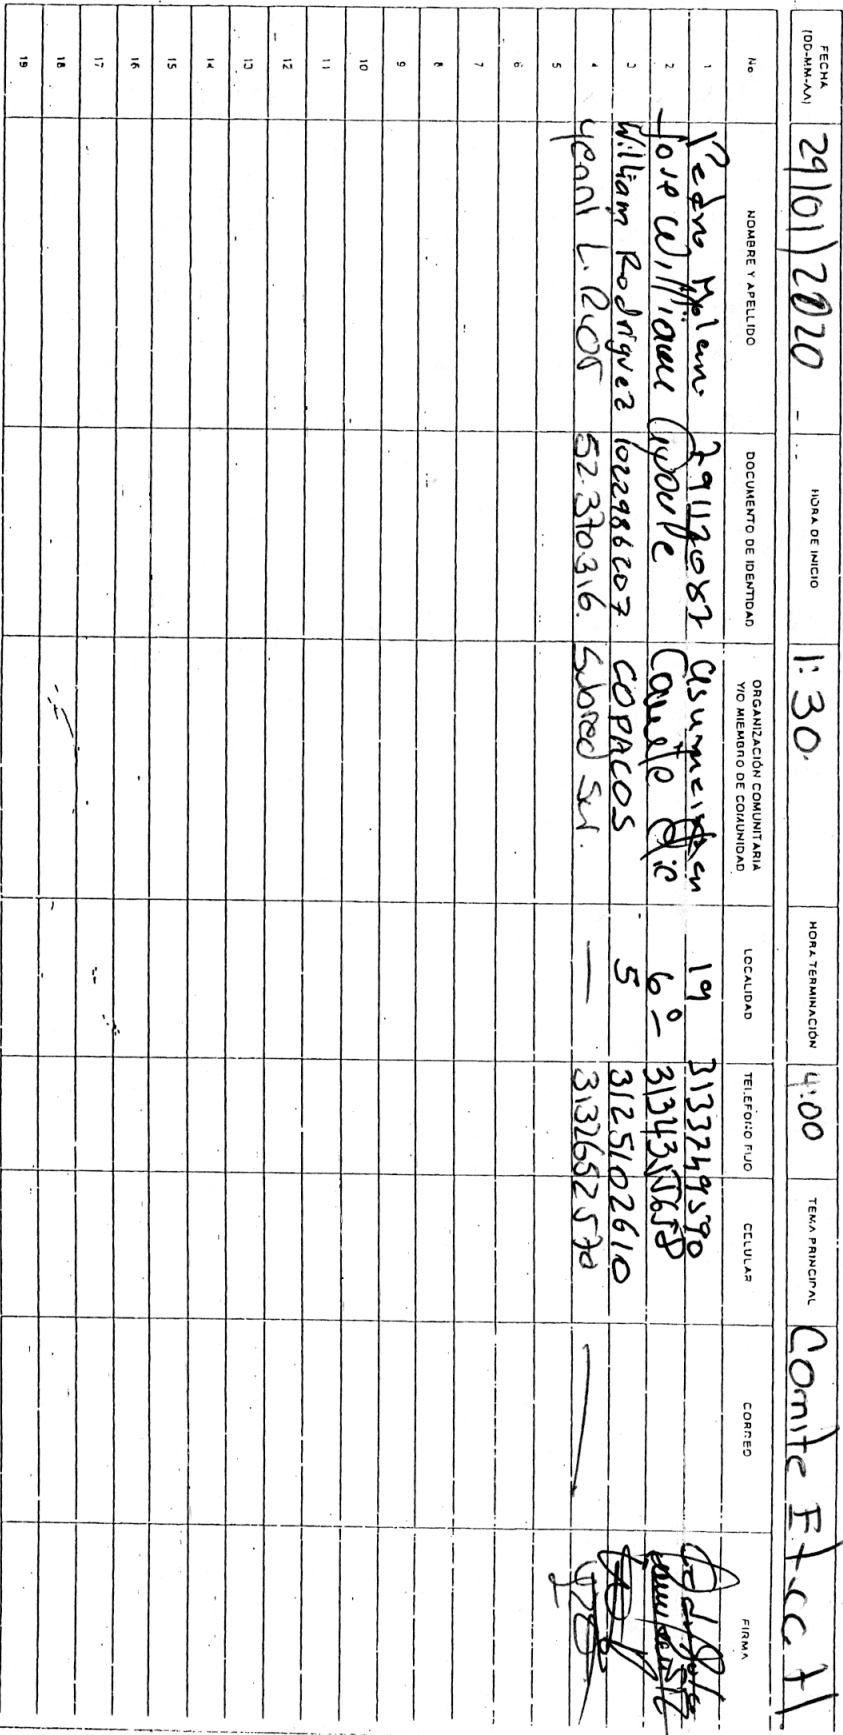 FECHA (DD-MM-AA) 29/01/2020 - HORA DE INICIO 1:30. HORA TERMINACIÓN 4:00 TEMA PRINCIPAL Comite
No NOMBRE Y APELLIDO DOCUMENTO DE IDENTIDAD ORGANIZACIÓN COMUNITARIA Y/O MIEMBRO DE COMUNIDAD LOCALIDAD TELEFONO FIJO CELULAR CORREO FIRMA
1 Pedro 19 3133249590
2 Jose William 6º-
3 William Rodriguez 1022986207 COPACOS 5 3125102610
4 Yenni L. Rios 52.370.316. Subred Sur. — 3132652570 —
5
6
7
8
9
10
11
12
13
14
15
16
17
18
19